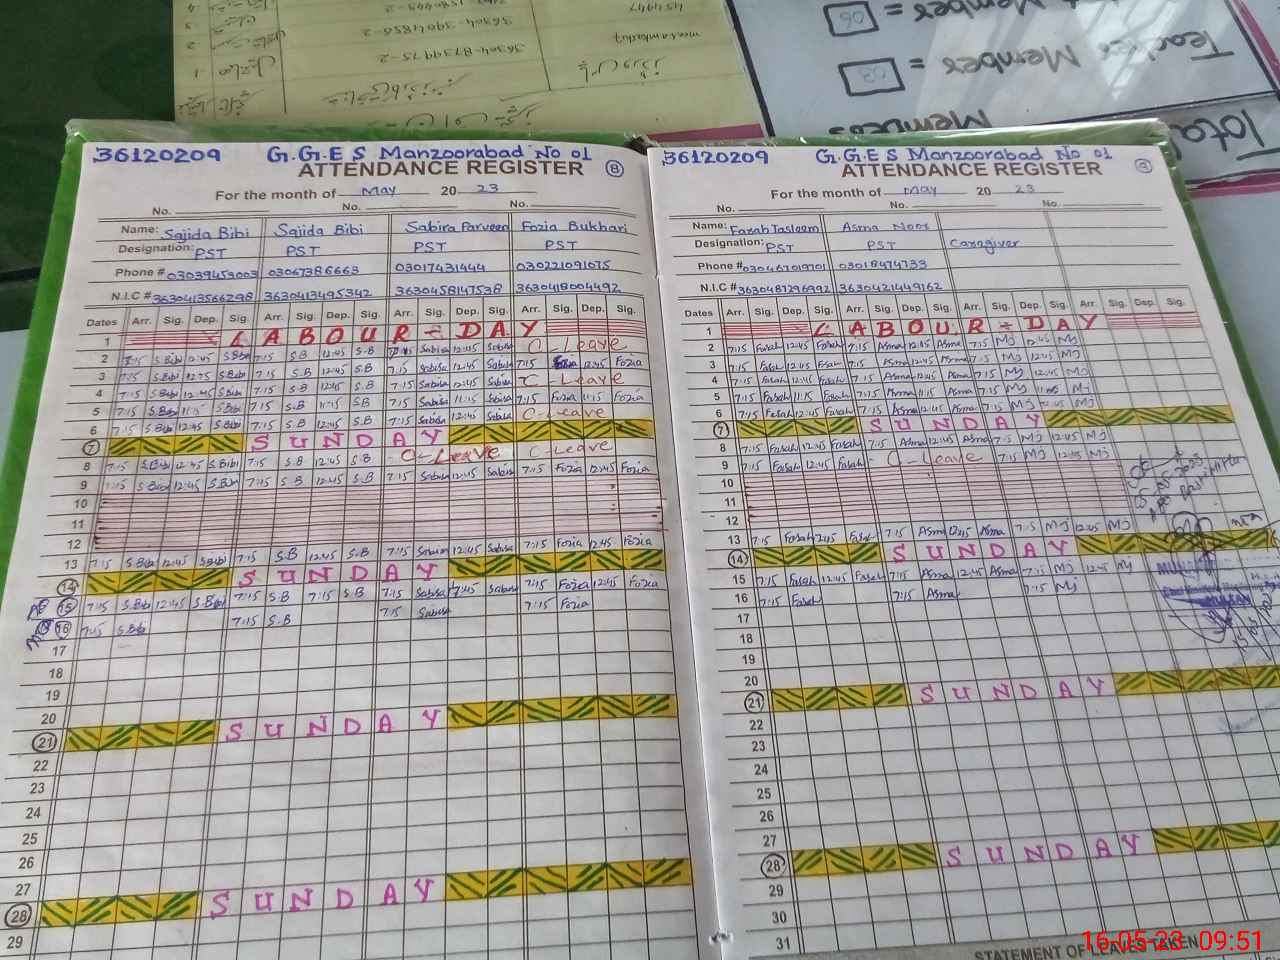 36120209 G.G.E.S Manzoorabad No 01
ATTENDANCE REGISTER 8
For the month of May 20 23
No. No. No.
Name: Sajida Bibi Sajida Bibi Sabira Parveen Fozia Bukhari
Designation: PST PST PST PST
Phone # 03039453003 03067386663 03017431444 030221091075
N.I.C # 3630413566298 3630413495342 3630458147538 3630418004492
Dates Arr. Sig. Dep. Sig. Arr. Sig. Dep. Sig. Arr. Sig. Dep. Sig. Arr. Sig. Dep. Sig.
1 LABOUR - DAY
2 7:15 S.Bibi 12:45 S.Bibi 7:15 S.B 12:45 S.B 7:15 Sabira 12:45 Sabira C-Leave
3 7:15 S.Bibi 12:45 S.Bibi 7:15 S.B 12:45 S.B 7:15 Sabira 12:45 Sabira 7:15 Fozia 12:45 Fozia
4 7:15 S.Bibi 12:45 S.Bibi 7:15 S.B 12:45 S.B 7:15 Sabira 12:45 Sabira C-Leave
5 7:15 S.Bibi 11:15 S.Bibi 7:15 S.B 11:15 S.B 7:15 Sabira 11:15 Sabira 7:15 Fozia 11:15 Fozia
6 7:15 S.Bibi 12:45 S.Bibi 7:15 S.B 12:45 S.B 7:15 Sabira 12:45 Sabira C-Leave
7 SUNDAY
8 7:15 S.Bibi 12:45 S.Bibi 7:15 S.B 12:45 S.B C-Leave C-Leave
9 7:15 S.Bibi 12:45 S.Bibi 7:15 S.B 12:45 S.B 7:15 Sabira 12:45 Sabira 7:15 Fozia 12:45 Fozia
10
11
12
13 7:15 S.Bibi 12:45 S.Bibi 7:15 S.B 12:45 S.B 7:15 Sabira 12:45 Sabira 7:15 Fozia 12:45 Fozia
14 SUNDAY
15 7:15 S.Bibi 12:45 S.Bibi 7:15 S.B 7:15 S.B 7:15 Sabira 7:45 Sabira 7:15 Fozia 12:45 Fozia
16 7:15 S.Bibi 7:15 S.B 7:15 Sabira 7:15 Fozia
17
18
19
20
21 SUNDAY
22
23
24
25
26
27
28 SUNDAY
29
36120209 G.G.E.S Manzoorabad No 01
ATTENDANCE REGISTER
For the month of May 20 23
No. No. No.
Name: Farah Tasleem Asma Noor
Designation: PST PST Caragiver
Phone # 03046701970 03018474733
N.I.C # 3630481276992 3630421449162
Dates Arr. Sig. Dep. Sig. Arr. Sig. Dep. Sig. Arr. Sig. Dep. Sig. Arr. Sig. Dep. Sig.
1 LABOUR - DAY
2 7:15 Farah 12:45 Farah 7:15 Asma 12:45 Asma 7:15 MJ 12:45 MJ
3 7:15 Farah 12:45 Farah 7:15 Asma 12:45 Asma 7:15 MJ 12:45 MJ
4 7:15 Farah 12:45 Farah 7:15 Asma 12:45 Asma 7:15 MJ 12:45 MJ
5 7:15 Farah 11:15 Farah 7:15 Asma 11:15 Asma 7:15 MJ MJ
6 7:15 Farah 12:45 Farah 7:15 Asma 12:45 Asma 7:15 MJ 12:45 MJ
7 SUNDAY
8 7:15 Farah 12:45 Farah 7:15 Asma 12:45 Asma 7:15 MJ 12:45 MJ
9 7:15 Farah 12:45 Farah C-Leave 7:15 MJ 12:45 MJ
10
11
12
13 7:15 Farah 12:45 Farah 7:15 Asma 12:45 Asma 7:15 MJ 12:45 MJ
14 SUNDAY
15 7:15 Farah 12:45 Farah 7:15 Asma 12:45 Asma 7:15 MJ 12:45 MJ
16 7:15 Farah 7:15 Asma 7:15 MJ
17
18
19
20
21 SUNDAY
22
23
24
25
26
27
28 SUNDAY
29
30
31
STATEMENT OF LEAVES TAKEN
Member = 06
Teacher Member = 03
Total Members
36304-3904856-2
36304-8739975-2
16-05-23 09:51